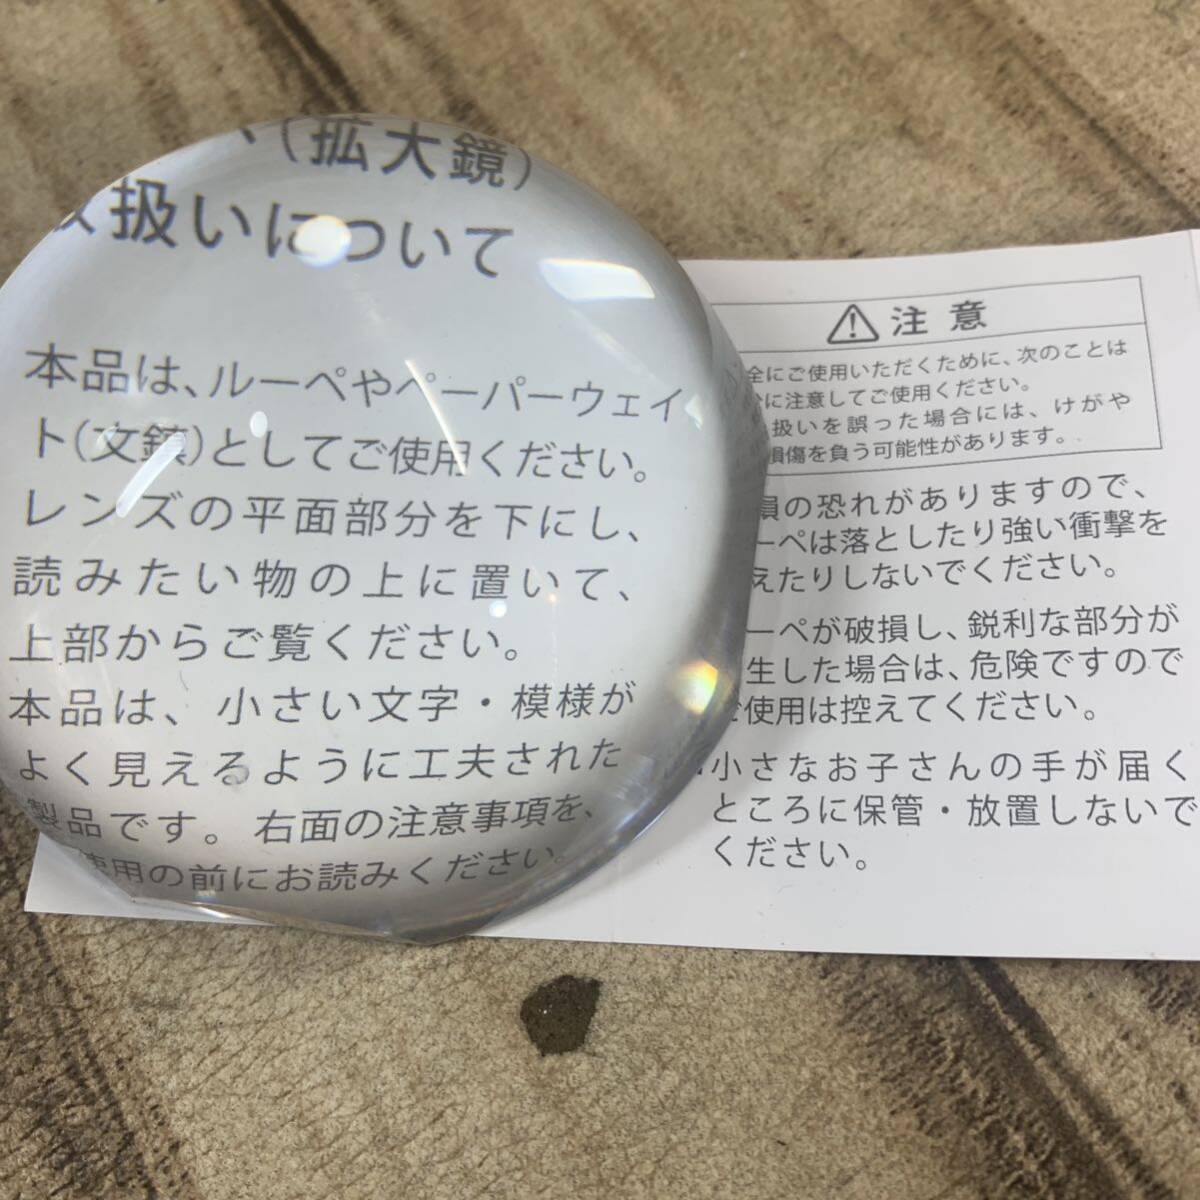 (拡大鏡)
扱いについて
本品は、ルーペやペーパーウェイ
ト(文鎮)としてご使用ください。
レンズの平面部分を下にし、
読みたい物の上に置いて、
上部からご覧ください。
本品は、小さい文字・模様が
よく見えるように工夫された
製品です。右面の注意事項を、
使用の前にお読みください。
注意
全にご使用いただくために、次のことは
に注意してご使用ください。
扱いを誤った場合には、けがや
損傷を負う可能性があります。
損の恐れがありますので、
ーペは落としたり強い衝撃を
えたりしないでください。
ーペが破損し、鋭利な部分が
生した場合は、危険ですので
使用は控えてください。
小さなお子さんの手が届く
ところに保管・放置しないで
ください。